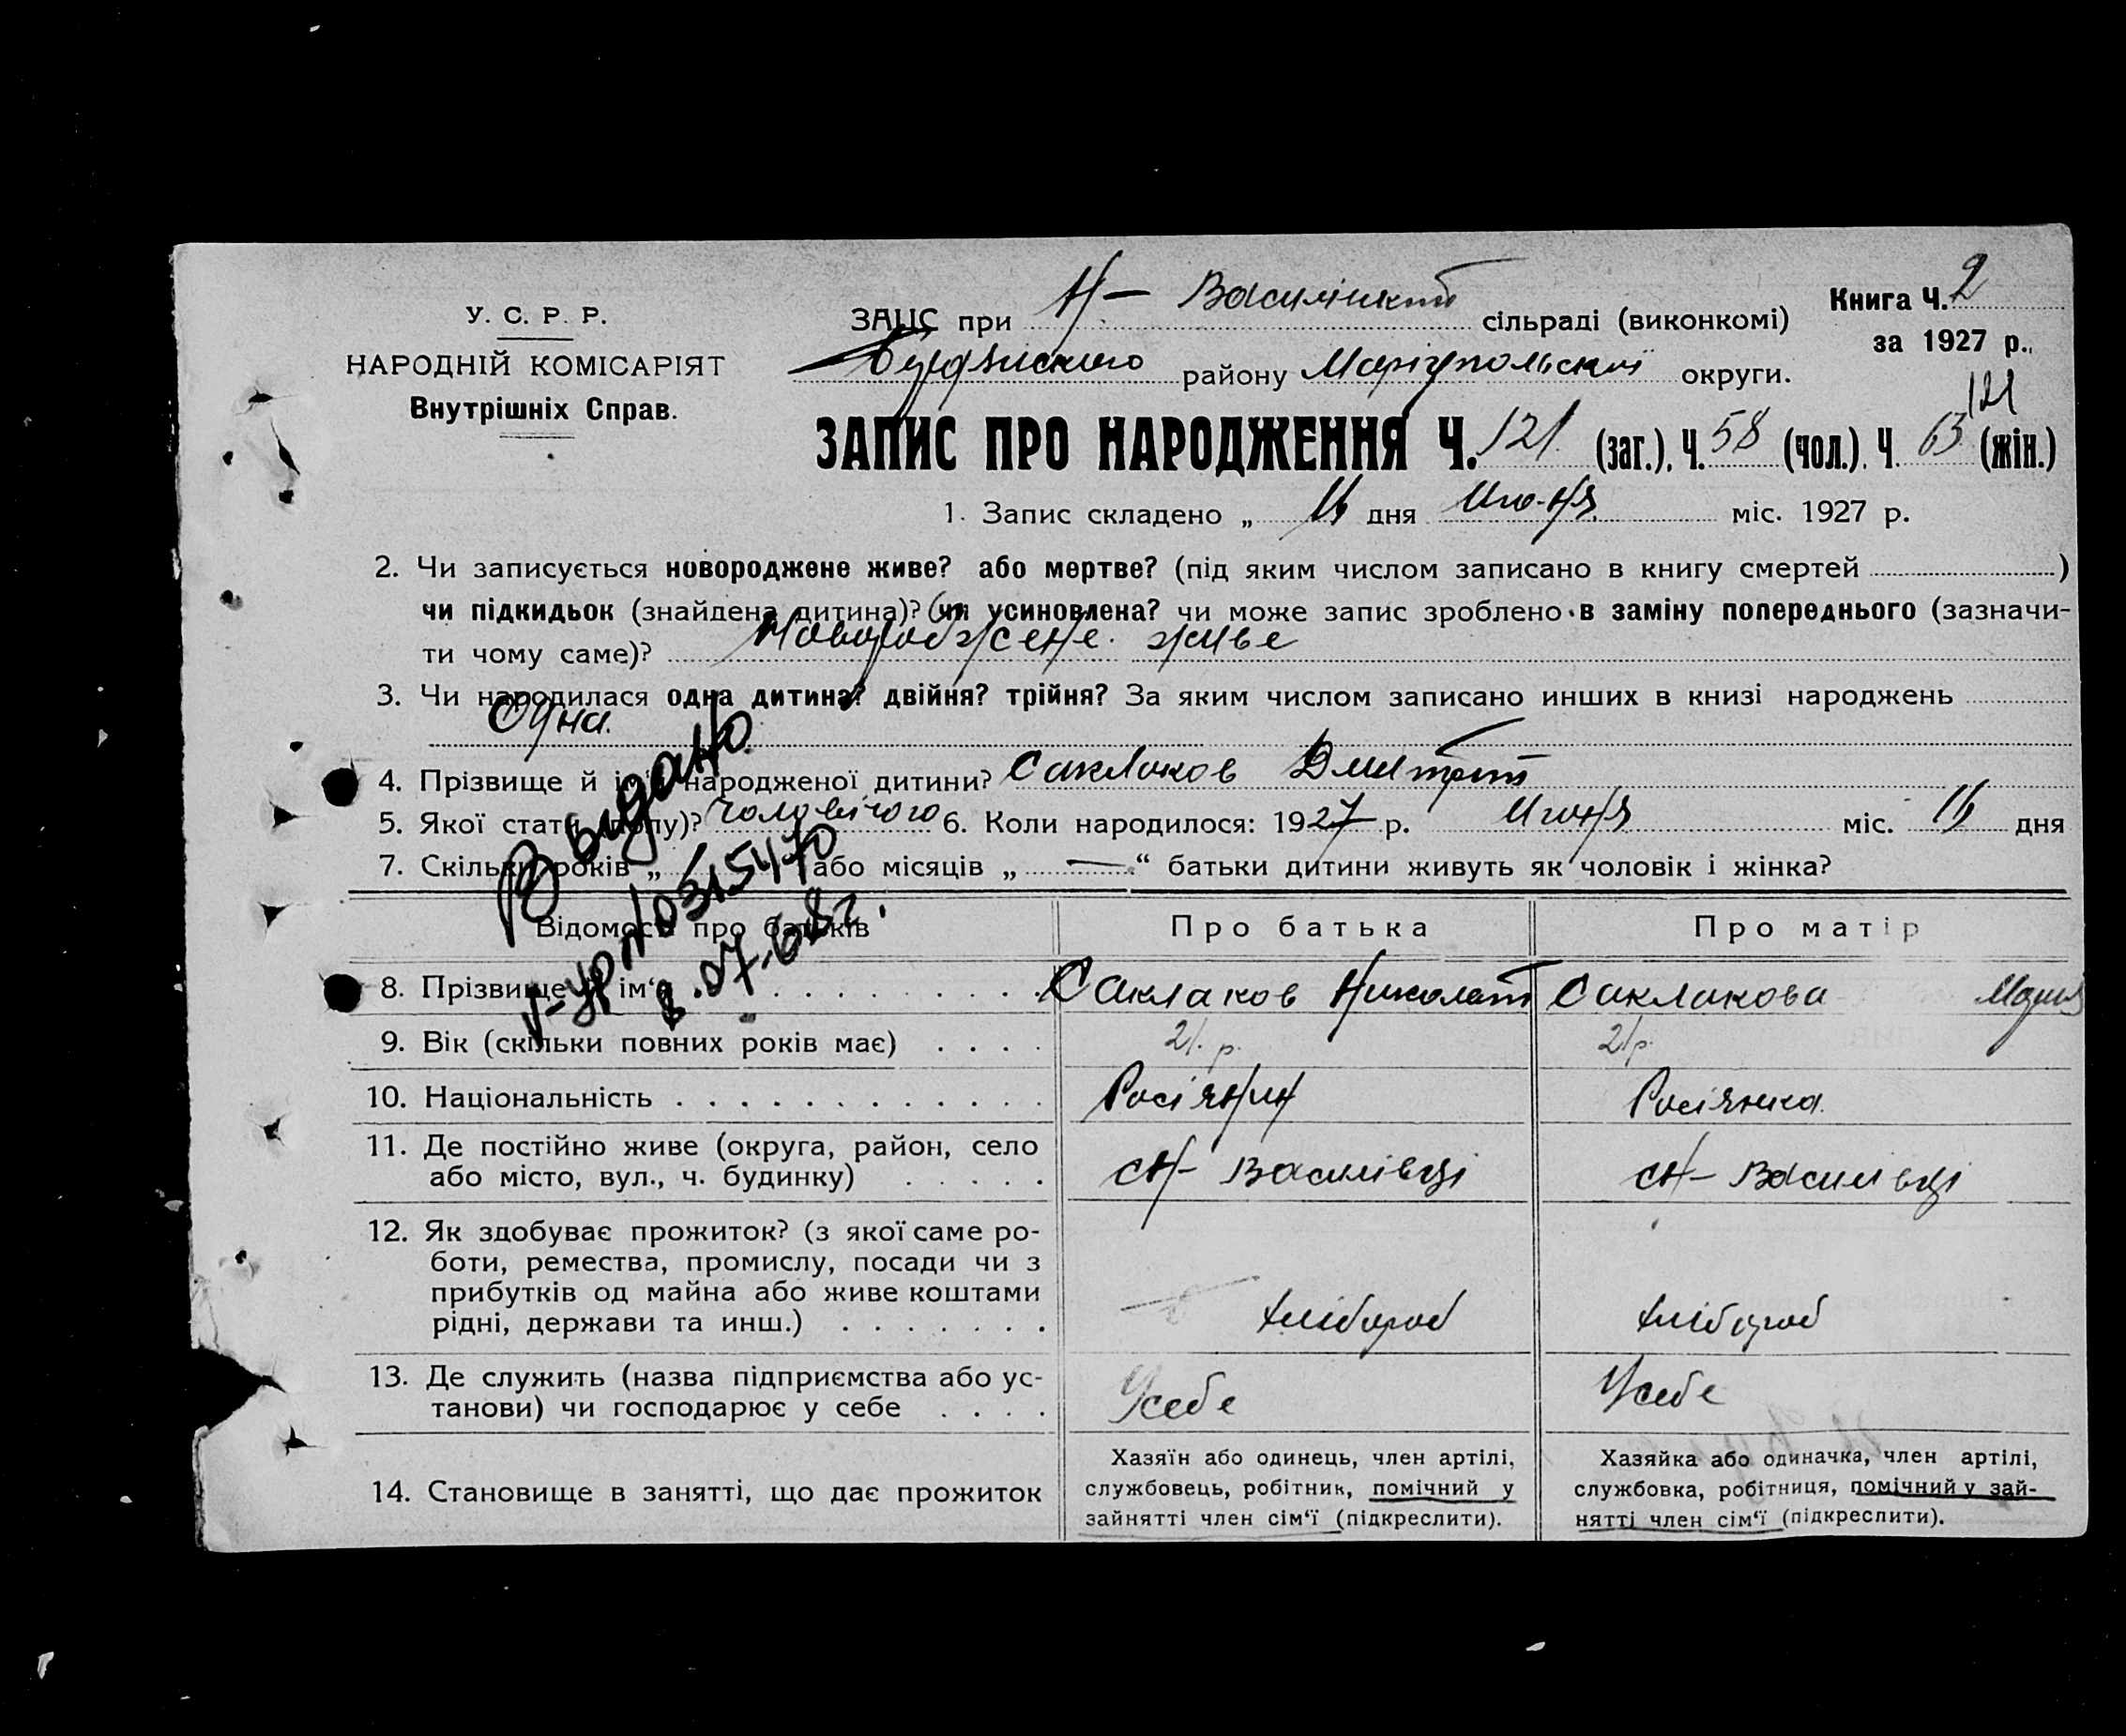 У. С. Р. Р.
НАРОДНІЙ КОМІСАРІЯТ
Внутрішніх Справ.
ЗАЦС при Н- Василівкій сільраді (виконкомі)
району Маріупольської округи.
Книга Ч. 2
за 1927 р.
121
ЗАПИС ПРО НАРОДЖЕННЯ Ч. 121 (заг.), Ч. 58 (чол.), Ч 63 (жін.)
1. Запис складено „ дня Июня міс. 1927 р.
2. Чи записується новороджене живе? або мертве? (під яким числом записано в книгу смертей )
чи підкидьок (знайдена дитина)? (чи усиновлена? чи може запис зроблено в заміну попереднього (зазначи-
ти чому саме)? Новорожсене живе
3. Чи народилася одна дитина? двійня? трійня? За яким числом записано инших в книзі народжень
Одна.
4. Прізвище й ім‘я народженої дитини? Саклаков Дмитрий
5. Якої стати (полу)? Чоловічого 6. Коли народилося: 1927 р. Июня міс. дня
7. Скільки років „ або місяців „ — “ батьки дитини живуть як чоловік і жінка?
Выдано
031.5470
.07.68г.
Відомости про батьків
Про батька
Про матір
8. Прізвище й ім‘я Саклаков Николай Саклакова Мария
9. Вік (скільки повних років має) 21. р. 21р.
10. Національність Росіянин Росіянка.
11. Де постійно живе (округа, район, село
або місто, вул., ч. будинку) сН- Василівці сН- Василівці
12. Як здобуває прожиток? (з якої саме ро-
боти, ремества, промислу, посади чи з
прибутків од майна або живе коштами
рідні, держави та инш.) хлібороб хлібороб
13. Де служить (назва підприємства або ус-
танови) чи господарює у себе Усебе Усебе
14. Становище в занятті, що дає прожиток
Хазяїн або одинець, член артілі,
службовець, робітник, помічний у
зайнятті член сім‘ї (підкреслити).
Хазяйка або одиначка, член артілі,
службовка, робітниця, помічний у зай-
нятті член сім‘ї (підкреслити).